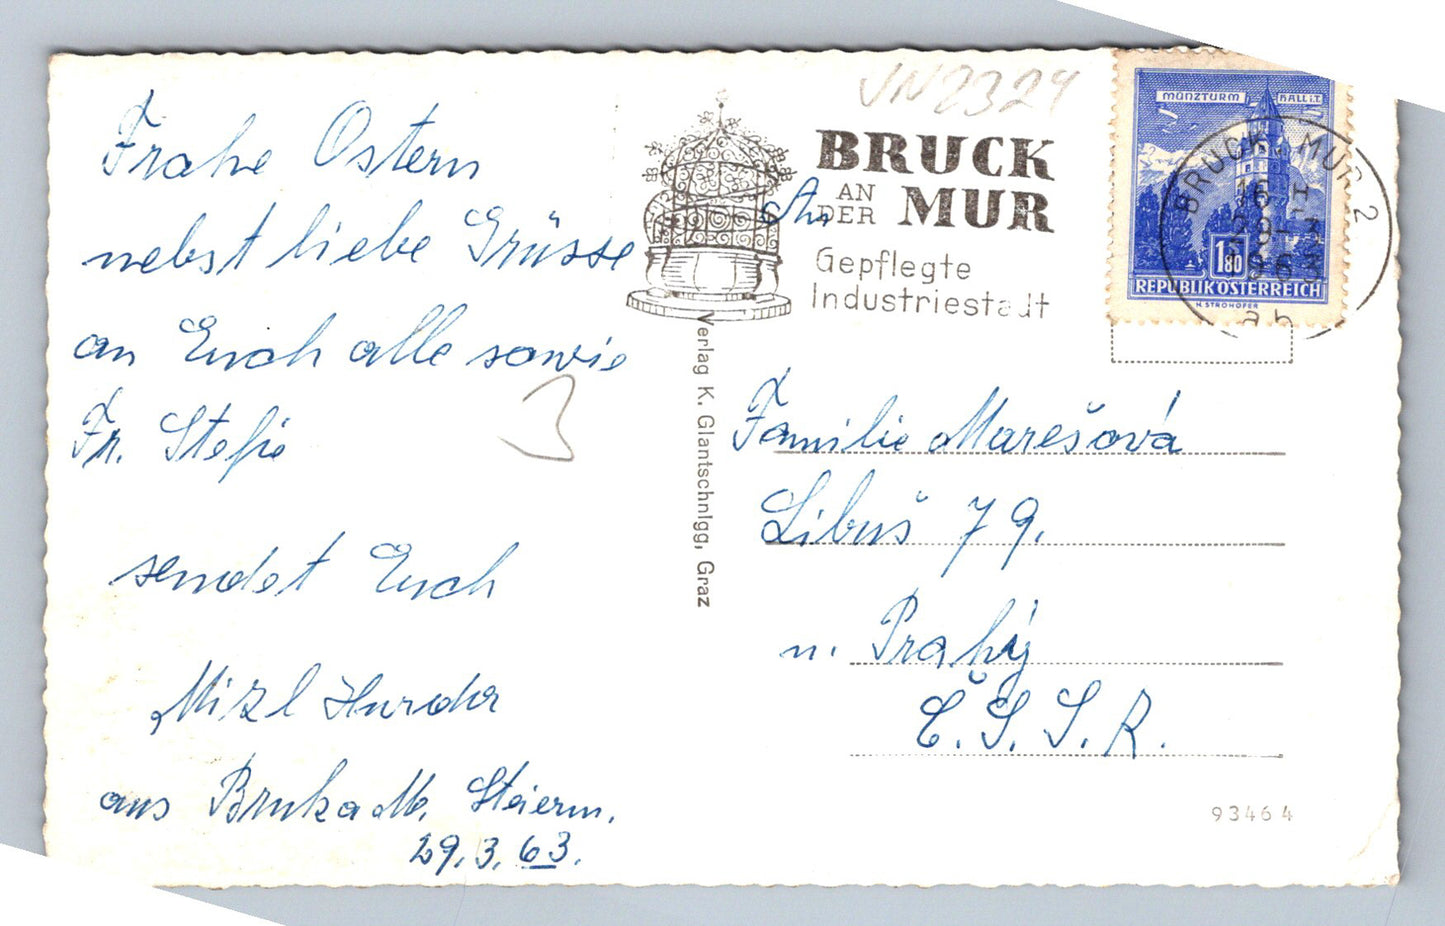 Frohe Ostern
nebst liebe Grüsse
an Euch alle sowie
Fr. Stefie
sendet Euch
Mizl
aus Bruk a. M. Steierm.
29.3.63.
3
VN2324
BRUCK
AN DER MUR
Gepflegte
Industriestadt
An
MÜNZTURM HALL i.T.
1.80
REPUBLIK ÖSTERREICH
H. STROHOFER
BRUCK, MUR 2
Verlag K. Glantschnigg, Graz
Familie Marešová
Libuš 79.
u. Prahy
Č.S.S.R.
93464